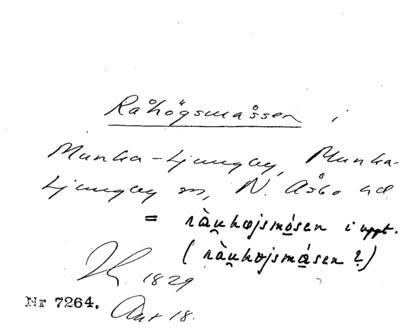 Råhögsmåssen i
Munka-Ljungby, Munka-
Ljungby sn, N. Åsbo hd
= ràu̯hœjsmósen i uppt.
(ràu̯hœjsmásen?)
1829
Nr 7264. Akt 18.